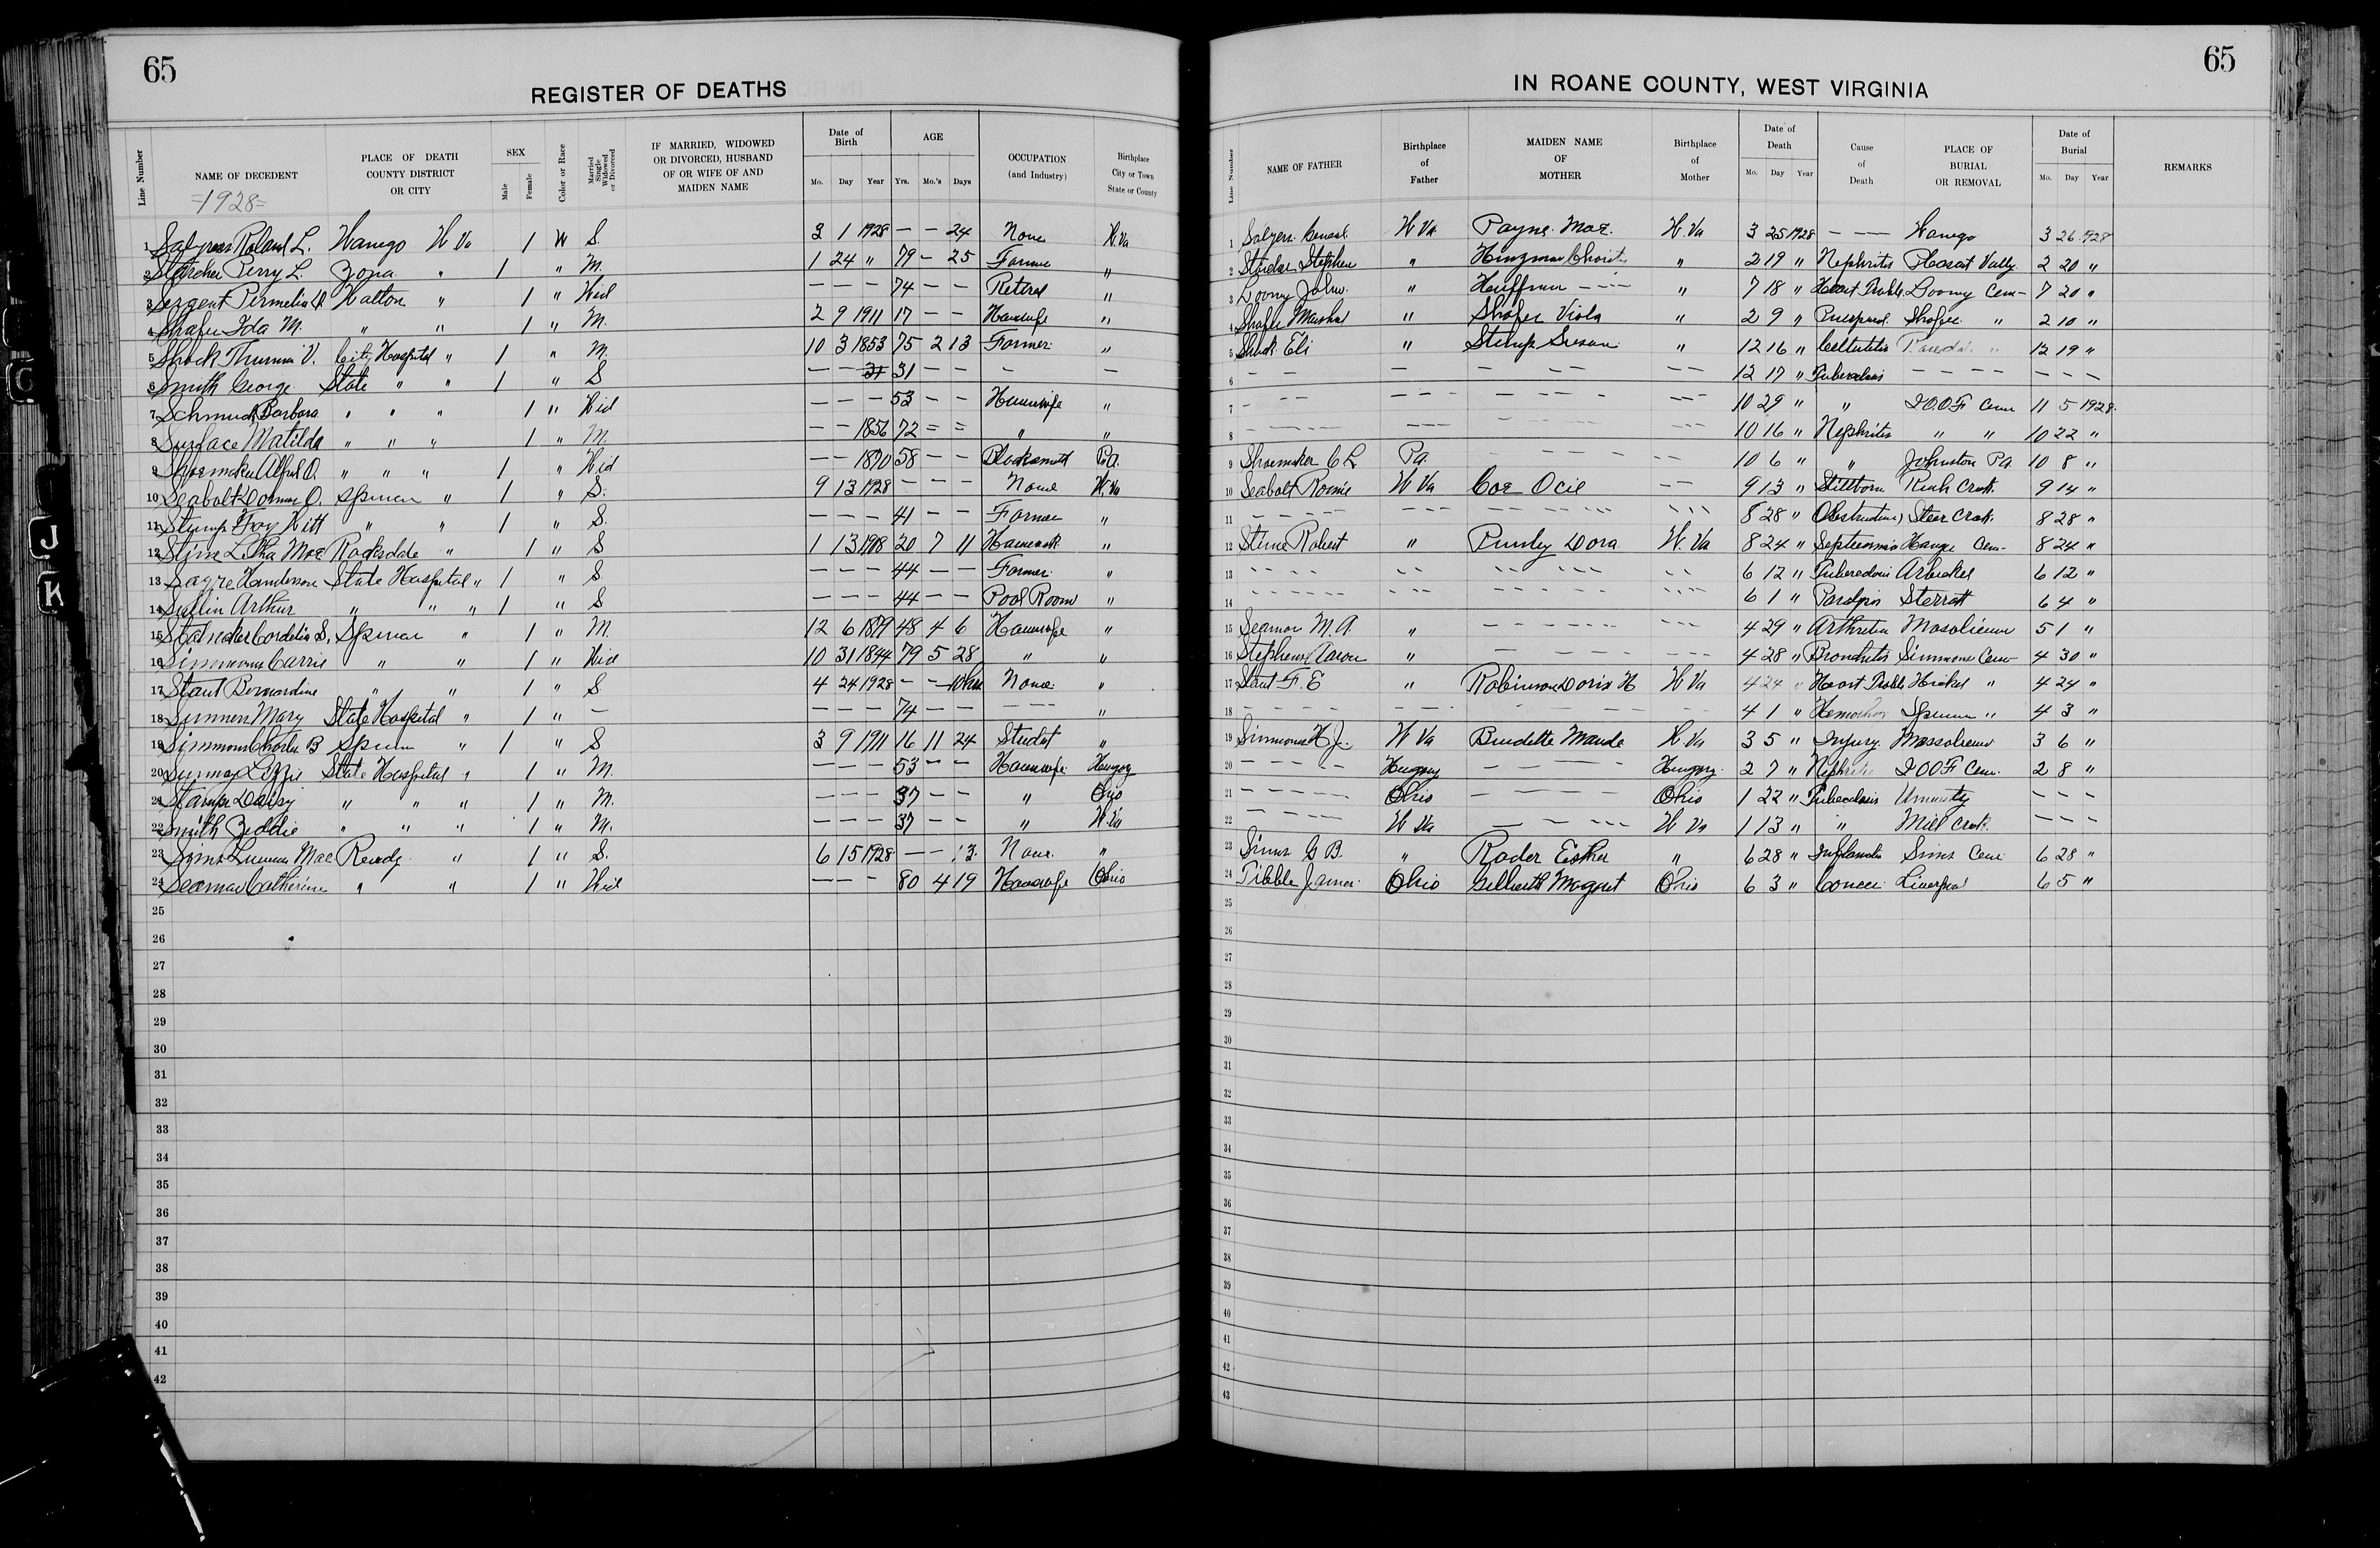 65
REGISTER OF DEATHS
Line Number
NAME OF DECEDENT
=1928=
PLACE OF DEATH COUNTY DISTRICT OR CITY
SEX
Male Female
Color or Race
Married Single Widowed or Divorced
IF MARRIED, WIDOWED OR DIVORCED, HUSBAND OF OR WIFE OF AND MAIDEN NAME
Date of Birth
Mo. Day Year
AGE
Yrs. Mo.'s Days
OCCUPATION (and Industry)
Birthplace City or Town State or County
1 Roland L. Wanego W Va 1 W S. 3 1 1928 — — 24 None W. Va
2 Starcher Perry L. Zona " 1 " M. 1 24 " 79 — 25 Farmer "
3 Sergent Permelia Walton " 1 " Wid — — — 74 — — Retired "
4 Shafer Ida M. " " 1 " M. 2 9 1911 17 — — Housewife "
5 Shock Thurman V. City Hospital " 1 " M. 10 3 1853 75 2 13 Farmer "
6 Smith George State " " 1 " S — — 31 31 — — — —
7 Schmuck Barbara " " " 1 " Wid — — — 53 — — Housewife "
8 Surface Matilda " " " 1 " M. — — 1856 72 = = " "
9 Shoemaker Alfred O. " " " 1 " Wid — — 1870 58 — — Blacksmith Pa.
10 Seabolt O. Spencer " 1 " S. 9 13 1928 — — — None W. Va
11 Stump Foy Witt " " 1 " S. — — — 41 — — Farmer "
12 Mae Rocksdale " 1 " S 1 13 1908 20 7 11 Housework "
13 Sayre Henderson State Hospital " 1 " S. — — — 44 — — Farmer "
14 Arthur " " " 1 " S — — — 44 — — Pool Room "
15 Stalnaker Cordelia S. Spencer " 1 " M. 12 6 1879 48 4 6 Housewife "
16 Simmons Carrie " " 1 " Wid 10 31 1844 79 5 28 " "
17 Staut Bernardine " " 1 " S 4 24 1928 — — None "
18 Mary State Hospital " 1 " — — — — 74 — — — — "
19 Simmons Charles B Spencer " 1 " S 3 9 1911 16 11 24 Student "
20 Lizzie State Hospital " 1 " M. — — — 53 — — Housewife Hungry
21 Stamper Daisy " " " 1 " M. — — — 37 — — " Ohio
22 Smith Zeddie " " " 1 " M. — — — 37 — — " W. Va
23 Sims Mae Reedy " 1 " S. 6 15 1928 — — 13 None "
24 Seaman Catherine " " 1 " Wid — — — 80 4 19 Housewife Ohio
25
26
27
28
29
30
31
32
33
34
35
36
37
38
39
40
41
42
65
IN ROANE COUNTY, WEST VIRGINIA
Line Number
NAME OF FATHER
Birthplace of Father
MAIDEN NAME OF MOTHER
Birthplace of Mother
Date of Death
Mo. Day Year
Cause of Death
PLACE OF BURIAL OR REMOVAL
Date of Burial
Mo. Day Year
REMARKS
1 W Va Payne Mae W. Va 3 25 1928 — — — Wanego 3 26 1928
2 Stephen " Hinzman " 2 19 " Nephritis Pleasant Vally 2 20 "
3 Looney John " Huffman — — — " 7 18 " Heart Troble Looney Cem— 7 20 "
4 Shafer Marshal " Shafer Viola " 2 9 " Shafer " 2 10 "
5 Shock Eli " Stump Susan " 12 16 " 12 19 "
6 — — — — — — — — 12 17 " Tuberculosis — — — — — — —
7 — — — — — — 10 29 " " I.O.O.F Cem 11 5 1928
8 — — — — — — 10 16 " Nephritis " " 10 22 "
9 Shoemaker C L Pa. — — — — — — 10 6 " " Johnston Pa. 10 8 "
10 Seabolt Romie W Va Coe Ocie — — 9 13 " Stillborn Rush Creek 9 14 "
11 — — — — — — 8 28 " Obstruction Steer Creek 8 28 "
12 Robert " Dora W. Va 8 24 " Cem— 8 24 "
13 — — — — — — 6 12 " Tuberculosis 6 12 "
14 — — — — — — 6 1 " 6 4 "
15 Seaman M. A. " — — — — — — 4 29 " Mosolieum 5 1 "
16 Stephens Aaron " — — — — — — 4 28 " Bronchitis Simmons Cem 4 30 "
17 Staut F. E " Robinson Doris H W Va 4 24 " Heart Troble " 4 24 "
18 — — — — — — 4 1 " Spencer " 4 3 "
19 Simmons H. J. W Va Burdette Maude W. Va 3 5 " Injury Mossolieum 3 6 "
20 — — — — Hungry — — — — Hungry 2 7 " Nephritis I O O F Cem. 2 8 "
21 — — — — Ohio — — — Ohio 1 22 " Tuberculosis — — —
22 — — — — W Va — — — W Va 1 13 " " Mill Creek — — —
23 Sims G B. " Rader Esther " 6 28 " Sims Cem 6 28 "
24 Tibble James Ohio Ohio 6 3 " Cancer Liverpool 6 5 "
25
26
27
28
29
30
31
32
33
34
35
36
37
38
39
40
41
42
43
C
J
K